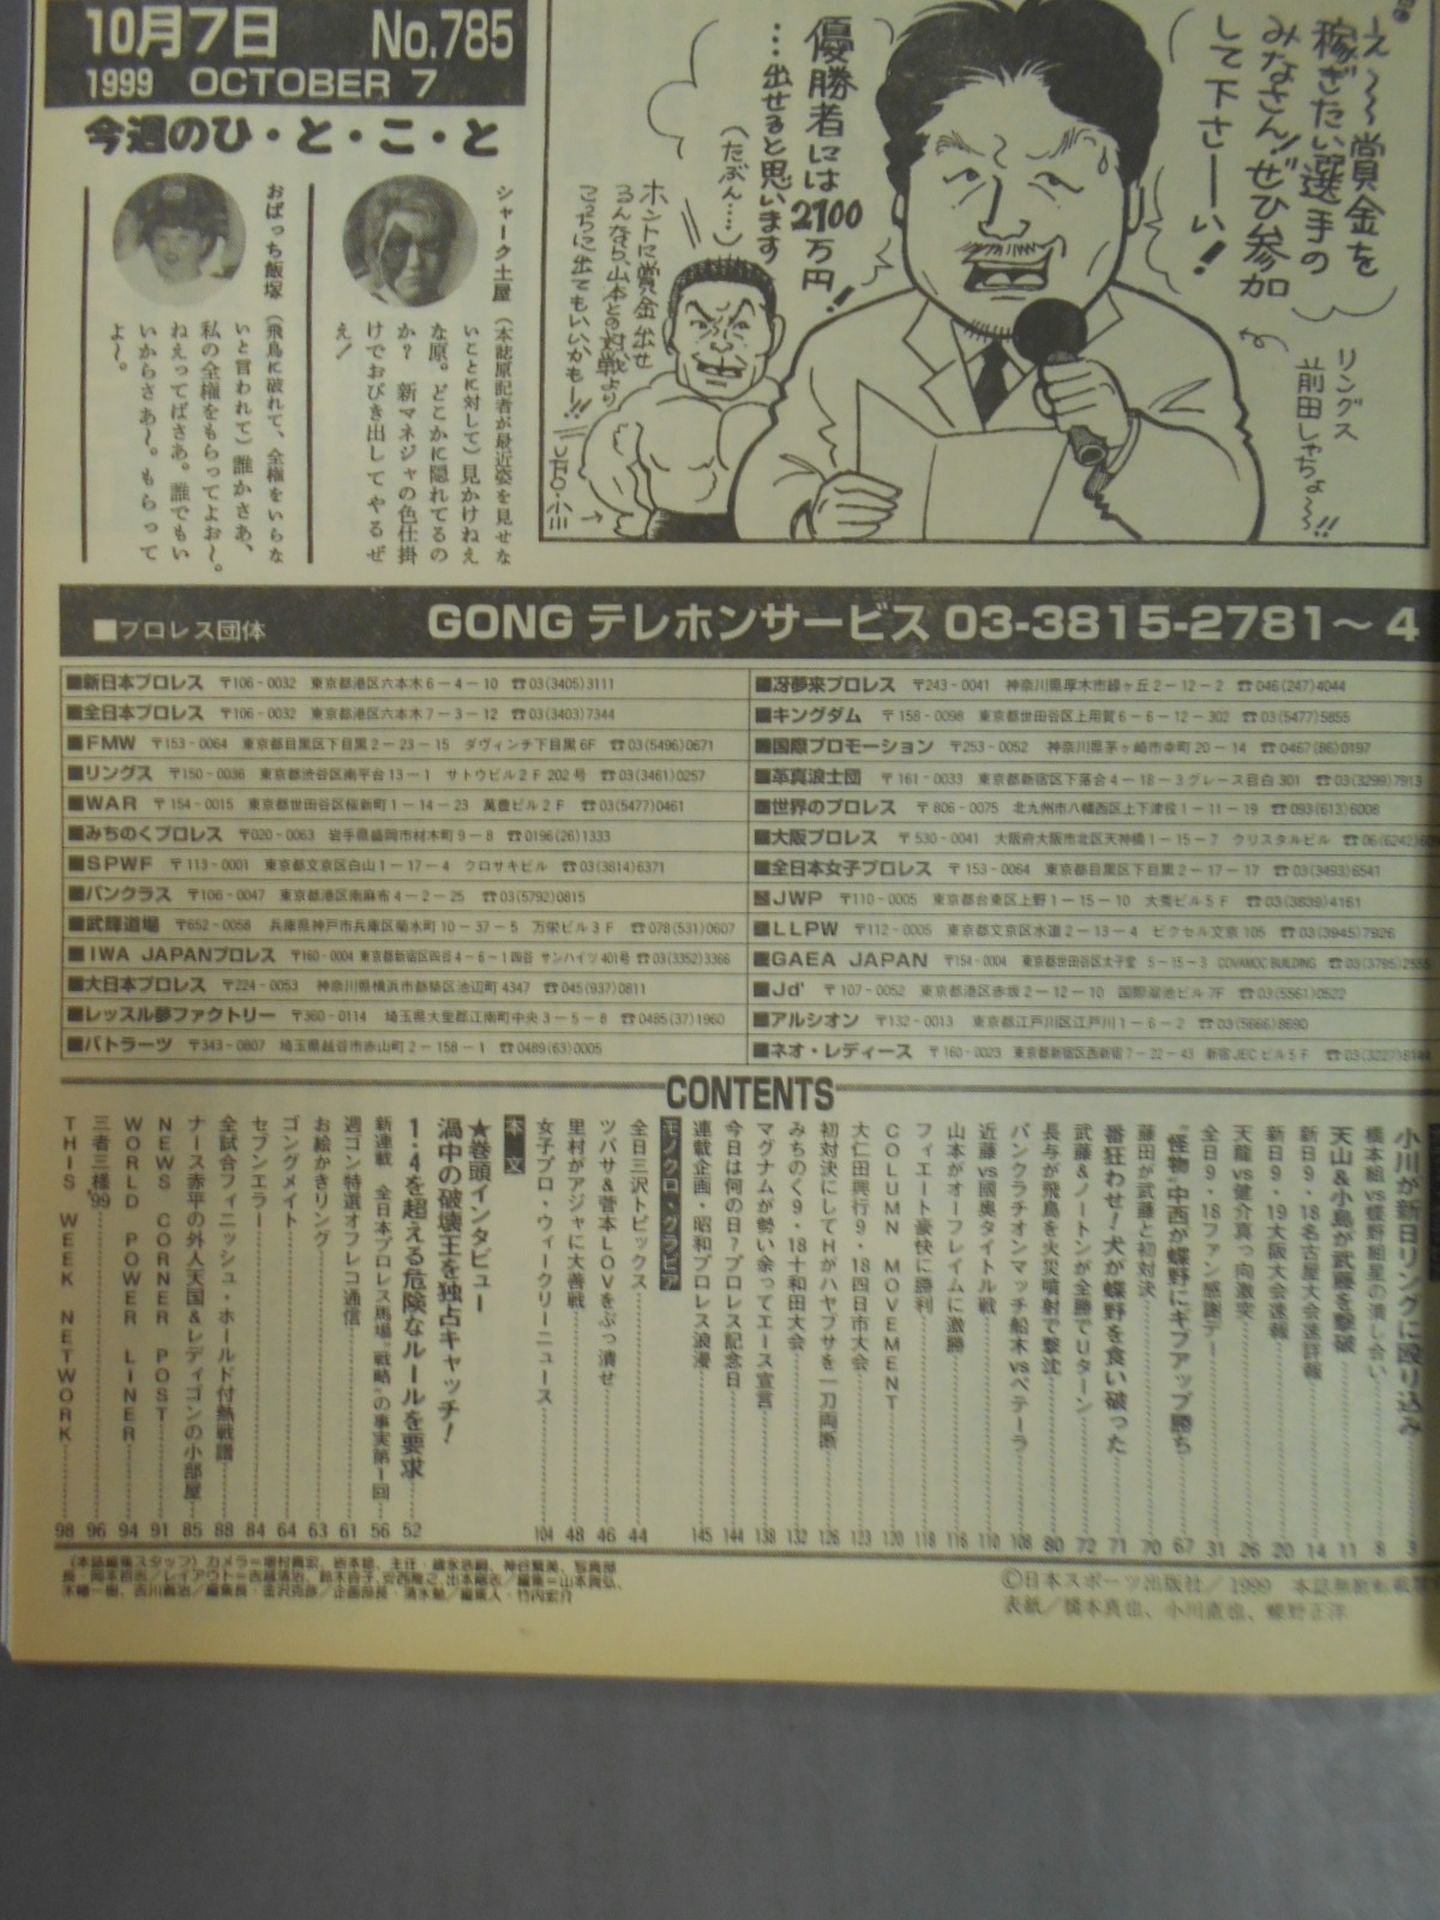 10月7日 No.785
1999 OCTOBER 7
今週のひ・と・こ・と
シャーク土屋(本誌原記者が最近姿を見せな
いことに対して)見かけねえ
な原。どこかに隠れてるの
か? 新マネジャの色仕掛
けでおびき出してやるぜ
え!
おばっち飯塚(飛鳥に破れて、全権をいらな
いと言われて)誰かさあ、
私の全権をもらってよお〜。
ねえってばさあ。誰でもい
いからさあ〜。もらって
よ〜。
え〜〜賞金を
稼ぎたい選手の
みなさん!ぜひ参加
して下さーーい!
リングス
前田しゃちょ〜〜!!
優勝者には
2100万円!
…出せると思います
(たぶん……)
ホントに賞金出せ
るんなら、山本との対戦より
こっちに出てもいいかもー!!
UFO・小川→
■プロレス団体 GONG テレホンサービス 03-3815-2781〜4
■新日本プロレス 〒106-0032 東京都港区六本木6-4-10 ☎03(3405)3111
■全日本プロレス 〒106-0032 東京都港区六本木7-3-12 ☎03(3403)7344
■FMW 〒153-0064 東京都目黒区下目黒2-23-15 ダヴィンチ下目黒6F ☎03(5496)0671
■リングス 〒150-0036 東京都渋谷区南平台13-1 サトウビル2F202号 ☎03(3461)0257
■WAR 〒154-0015 東京都世田谷区桜新町1-14-23 萬豊ビル2F ☎03(5477)0461
■みちのくプロレス 〒020-0063 岩手県盛岡市材木町9-8 ☎0196(26)1333
■SPWF 〒113-0001 東京都文京区白山1-17-4 クロサキビル ☎03(3814)6371
■パンクラス 〒106-0047 東京都港区南麻布4-2-25 ☎03(5792)0815
■武輝道場 〒652-0058 兵庫県神戸市兵庫区菊水町10-37-5 万栄ビル3F ☎078(531)0607
■IWA JAPANプロレス 〒160-0004 東京都新宿区四谷4-6-1四谷 サンハイツ401号 ☎03(3352)3366
■大日本プロレス 〒224-0053 神奈川県横浜市都築区池辺町4347 ☎045(937)0811
■レッスル夢ファクトリー 〒360-0114 埼玉県大里郡江南町中央3-5-8 ☎0485(37)1960
■バトラーツ 〒343-0807 埼玉県越谷市赤山町2-158-1 ☎0489(63)0005
■冴夢来プロレス 〒243-0041 神奈川県厚木市緑ヶ丘2-12-2 ☎046(247)4044
■キングダム 〒158-0098 東京都世田谷区上用賀6-6-12-302 ☎03(5477)5855
■国際プロモーション 〒253-0052 神奈川県茅ヶ崎市幸町20-14 ☎0467(86)0197
■革真浪士団 〒161-0033 東京都新宿区下落合4-18-3グレース目白301 ☎03(3299)7913
■世界のプロレス 〒806-0075 北九州市八幡西区上下津役1-11-19 ☎093(613)6008
■大阪プロレス 〒530-0041 大阪府大阪市北区天神橋1-15-7 クリスタルビル ☎06(6242)
■全日本女子プロレス 〒153-0064 東京都目黒区下目黒2-17-17 ☎03(3493)6541
■JWP 〒110-0005 東京都台東区上野1-15-10 大秀ビル5F ☎03(3839)4161
■LLPW 〒112-0005 東京都文京区水道2-13-4 ピクセル文京105 ☎03(3945)7926
■GAEA JAPAN 〒154-0004 東京都世田谷区太子堂 5-15-3 COVAMOC BUILDING ☎03(3795)2555
■Jd' 〒107-0052 東京都港区赤坂2-12-10 国際溜池ビル7F ☎03(5561)0522
■アルシオン 〒132-0013 東京都江戸川区江戸川1-6-2 ☎03(5666)8690
■ネオ・レディース 〒160-0023 東京都新宿区西新宿7-22-43 新宿JECビル5F ☎03(3227)8144
CONTENTS
小川が新日リングに殴り込み 3
橋本組vs蝶野組星の潰し合い 8
天山&小島が武藤を撃破 11
新日9・18名古屋大会速詳報 14
新日9・19大阪大会速報 20
天龍vs健介真っ向激突 26
全日9・18ファン感謝デー 31
“怪物”中西が蝶野にギブアップ勝ち 67
藤田が武藤と初対決 70
番狂わせ!犬が蝶野を食い破った 71
武藤&ノートンが全勝でUターン 72
長与が飛鳥を火災噴射で撃沈 80
パンクラチオンマッチ船木vsベテーラ 108
近藤vs國奥タイトル戦 110
山本がオーフレイムに激勝 116
フィエート豪快に勝利 118
COLUMN MOVEMENT 120
大仁田興行9・18四日市大会 123
初対決にしてHがハヤブサを一刀両断 126
みちのく9・18十和田大会 132
マグナムが勢い余ってエース宣言 138
今日は何の日?プロレス記念日 144
連載企画・昭和プロレス浪漫 145
モノクロ・グラビア
全日三沢トピックス 44
ツバサ&菅本LOVをぶっ潰せ 46
里村がアジャに大善戦 48
女子プロ・ウィークリーニュース 104
本文
★巻頭インタビュー
渦中の破壊王を独占キャッチ!
1・4を超える危険なルールを要求 52
新連載 全日本プロレス馬場“戦略”の事実第1回 56
週ゴン特選オフレコ通信 61
お絵かきリング 63
ゴングメイト 64
セブンエラー 84
全試合フィニッシュ・ホールド付熱戦譜 88
ナース赤平の外人天国&レディゴンの小部屋 85
NEWS CORNER POST 91
WORLD POWER LINER 94
三者三様'99 96
THIS WEEK NETWORK 98
©日本スポーツ出版社/1999 本誌無断転載
表紙/橋本真也、小川直也、蝶野正洋